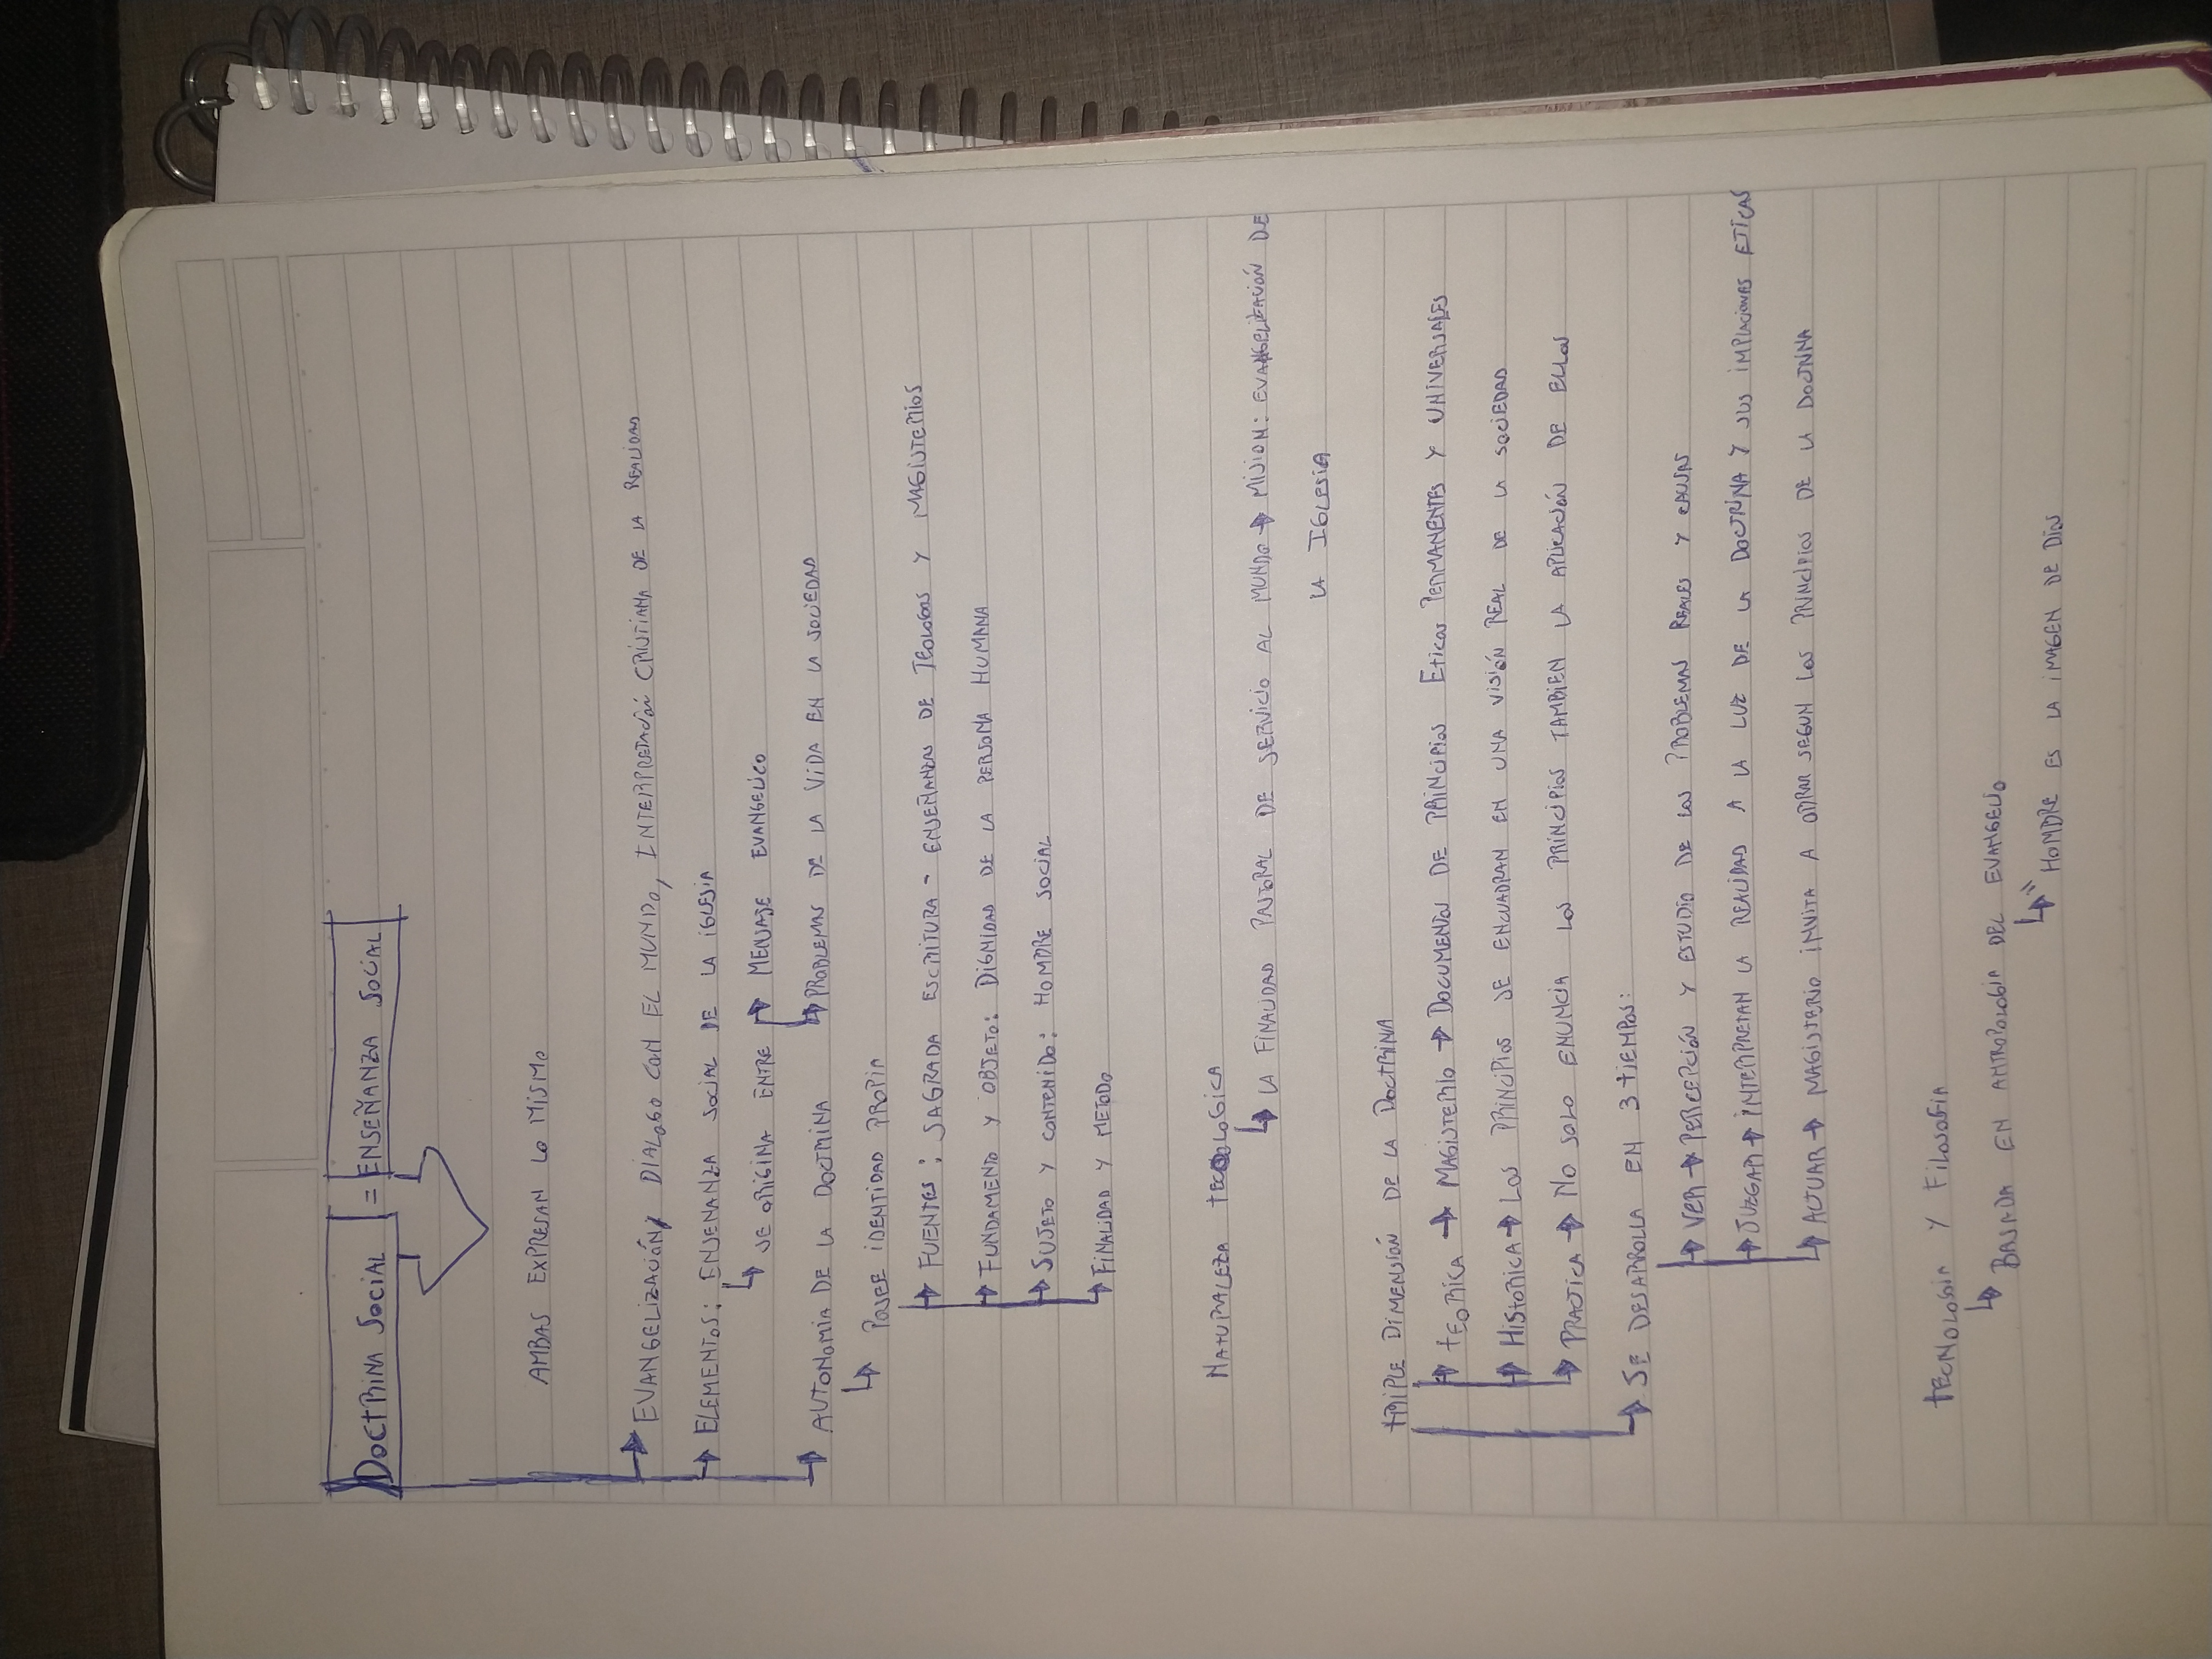 DOCTRINA SOCIAL = ENSEÑANZA SOCIAL
AMBAS EXPRESAN LO MISMO
→ EVANGELIZACIÓN, DIALOGO CON EL MUNDO, INTERPRETACIÓN CRISTIANA DE LA REALIDAD
→ ELEMENTOS: ENSEÑANZA SOCIAL DE LA IGLESIA
↳ SE ORIGINA ENTRE → MENSAJE EVANGELICO
↳ PROBLEMAS DE LA VIDA EN LA SOCIEDAD
→ AUTONOMIA DE LA DOCTRINA
↳ POSEE IDENTIDAD PROPIA
→ FUENTES: SAGRADA ESCRITURA - ENSEÑANZAS DE TEOLOGOS Y MAGISTERIOS
→ FUNDAMENTO Y OBJETO: DIGNIDAD DE LA PERSONA HUMANA
→ SUJETO Y CONTENIDO: HOMBRE SOCIAL
→ FINALIDAD Y METODO
NATURALEZA TEOLOGICA
↳ LA FINALIDAD PASTORAL DE SERVICIO AL MUNDO → MISION: EVANGELIZACIÓN DE
LA IGLESIA
TRIPLE DIMENSIÓN DE LA DOCTRINA
→ TEORICA → MAGISTERIO → DOCUMENTOS DE PRINCIPIOS ETICOS PERMANENTES Y UNIVERSALES
→ HISTORICA → LOS PRINCIPIOS SE ENCUADRAN EN UNA VISIÓN REAL DE LA SOCIEDAD
→ PRACTICA → NO SOLO ENUNCIA LOS PRINCIPIOS TAMBIEN LA APLICACIÓN DE ELLOS
↳ SE DESAROLLA EN 3 TIEMPOS:
→ VER → PERCEPCIÓN Y ESTUDIO DE LOS PROBLEMAS REALES Y CAUSAS
→ JUZGAR → INTERPRETAN LA REALIDAD A LA LUZ DE LA DOCTRINA Y SUS IMPLACIONES ETICAS
→ ACTUAR → MAGISTERIO INVITA A OBRAR SEGUN LOS PRINCIPIOS DE LA DOCTRINA
TECNOLOGIA Y FILOSOFIA
↳ BASADA EN ANTROPOLOGIA DEL EVANGELIO
↳ " HOMBRE ES LA IMAGEN DE DIOS